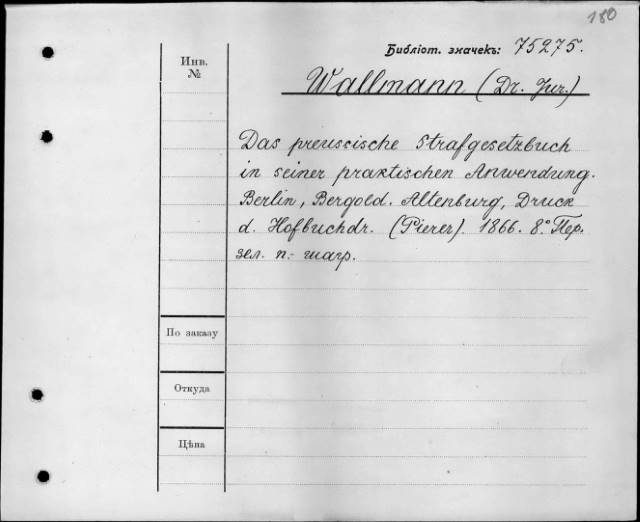 180
Библіот. значекъ: 75275.
Инв.
№
Wallmann (Dr. Jur.)
Das preussische Strafgesetzbuch
in seiner praktischen Anwendung.
Berlin, Bergold. Altenburg, Druck
d. Hofbuchdr. (Pierer). 1866. 8.° Пер.
зел. п.- шагр.
По заказу
Откуда
Цѣна